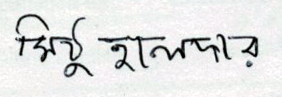 মিঠু হালদার